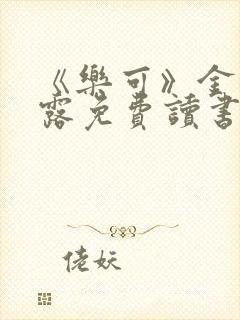 《樂可》金
露免費讀書
佬妖